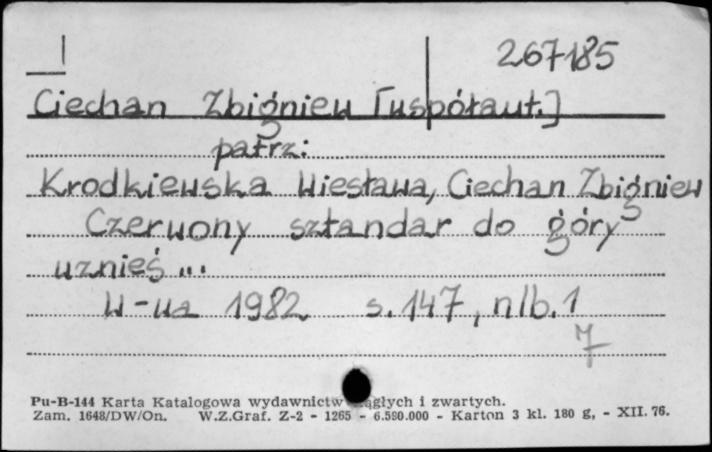 267185
Ciechan Zbigniew [współaut.]
patrz:
Krodkiewska Wiesława, Ciechan Zbigniew
Czerwony sztandar do góry
wznieś ...
W-wa 1982 s. 147, nlb. 1
7
Pu-B-144 Karta Katalogowa wydawnictw ciągłych i zwartych.
Zam. 1648/DW/On. W.Z.Graf. Z-2 - 1265 - 6.580.000 - Karton 3 kl. 180 g, - XII. 76.